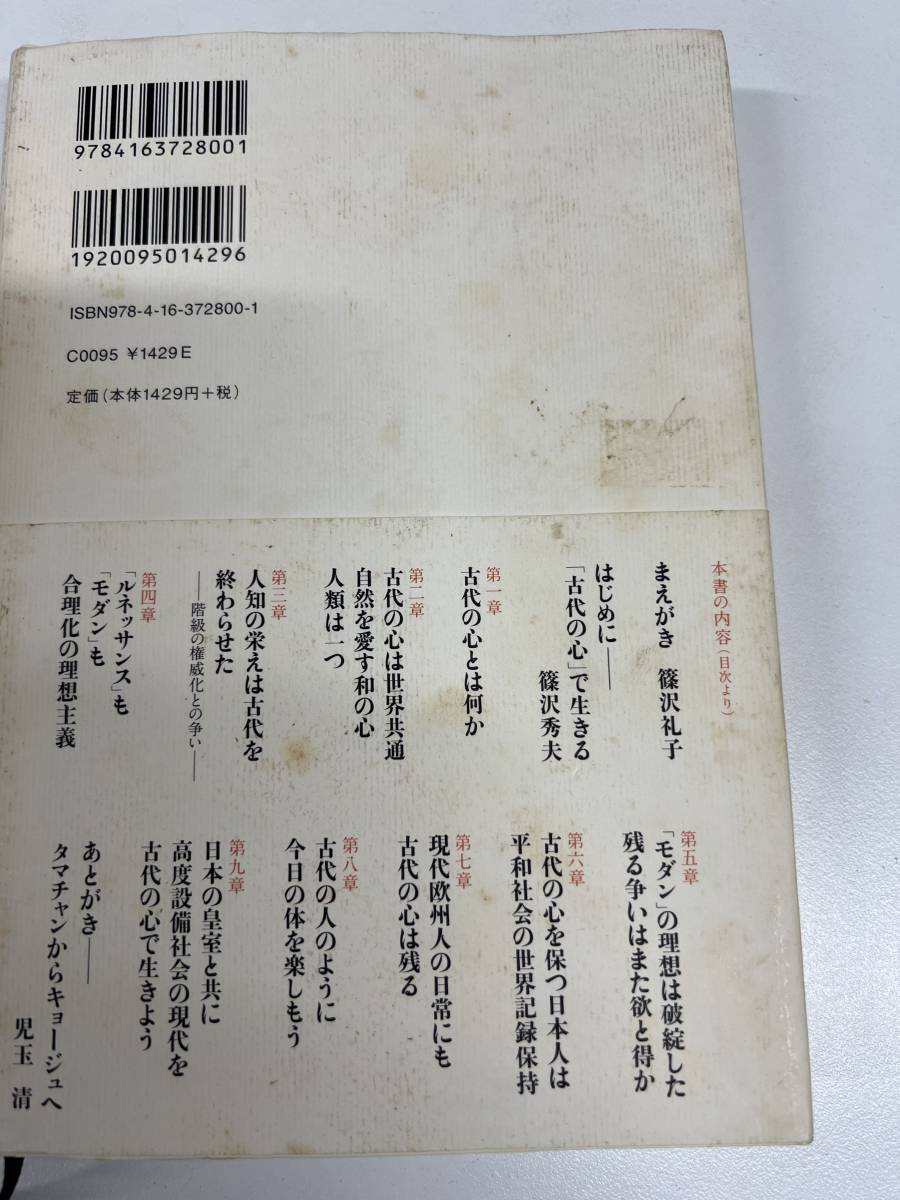 9784163728001
1920095014296
ISBN978-4-16-372800-1
C0095 ¥1429E
定価(本体1429円+税)
本書の内容(目次より)
まえがき 篠沢礼子
はじめに——
「古代の心」で生きる
篠沢秀夫
第一章
古代の心とは何か
第二章
古代の心は世界共通
自然を愛す和の心
人類は一つ
第三章
人知の栄えは古代を
終わらせた
——階級の権威化との争い——
第四章
「ルネッサンス」も
「モダン」も
合理化の理想主義
第五章
「モダン」の理想は破綻した
残る争いはまた欲と得か
第六章
古代の心を保つ日本人は
平和社会の世界記録保持
第七章
現代欧州人の日常にも
古代の心は残る
第八章
古代の人のように
今日の体を楽しもう
第九章
日本の皇室と共に
高度設備社会の現代を
古代の心で生きよう
あとがき——
タマチャンからキョージュへ
児玉 清